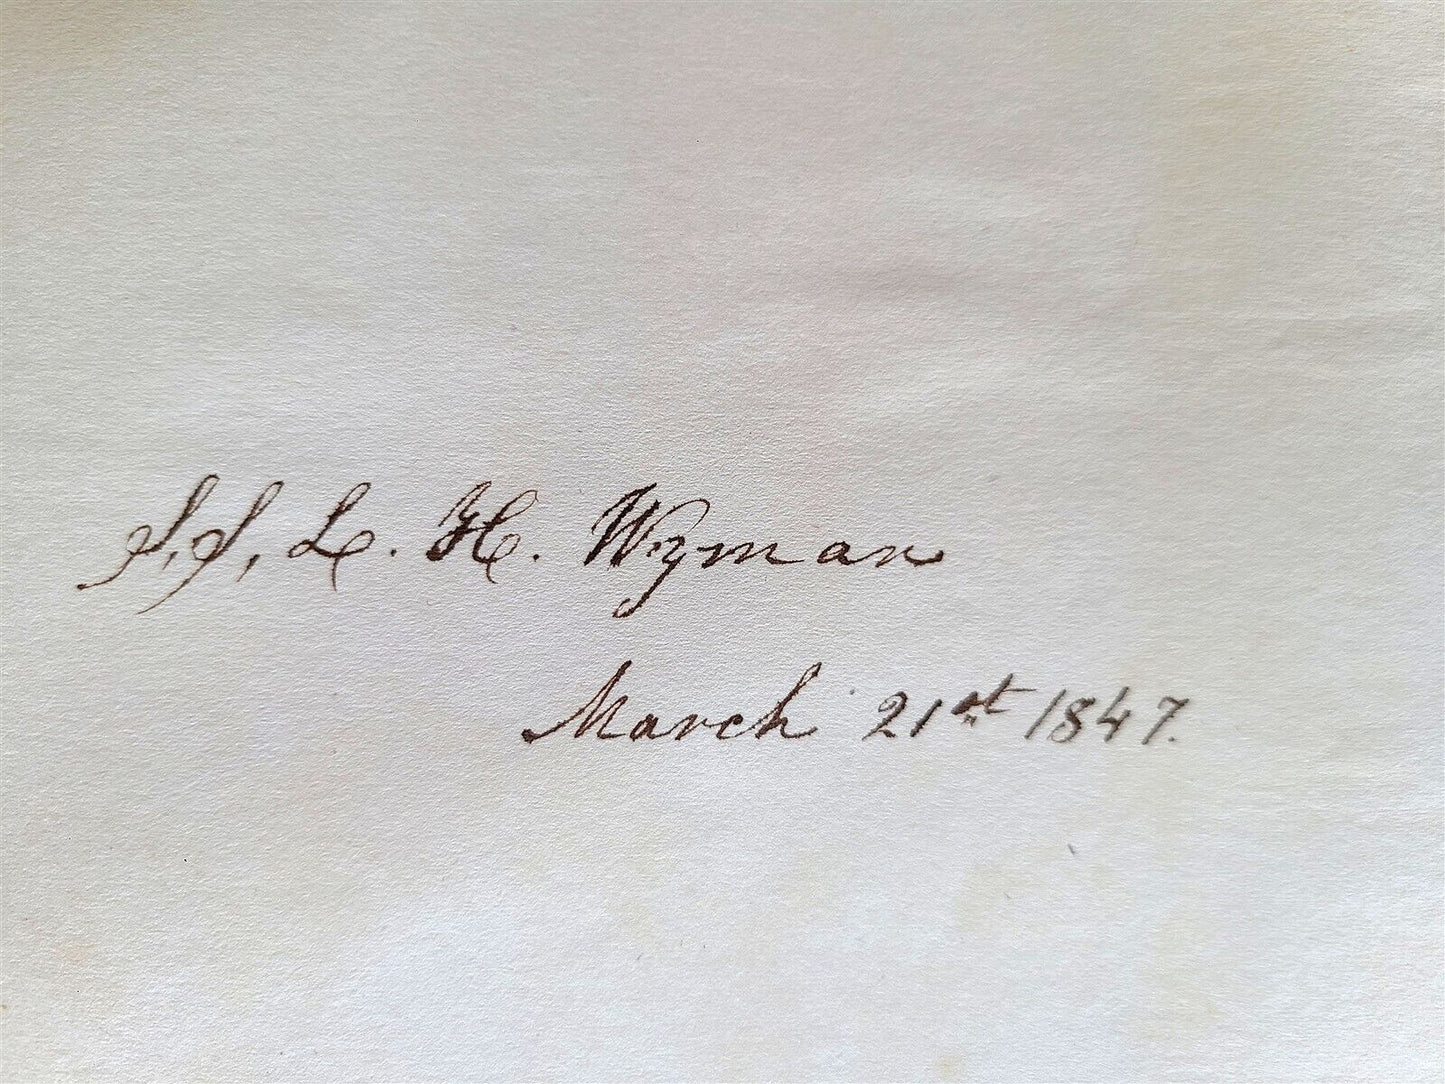 S, S, L. H. Wyman
March 21st 1847.